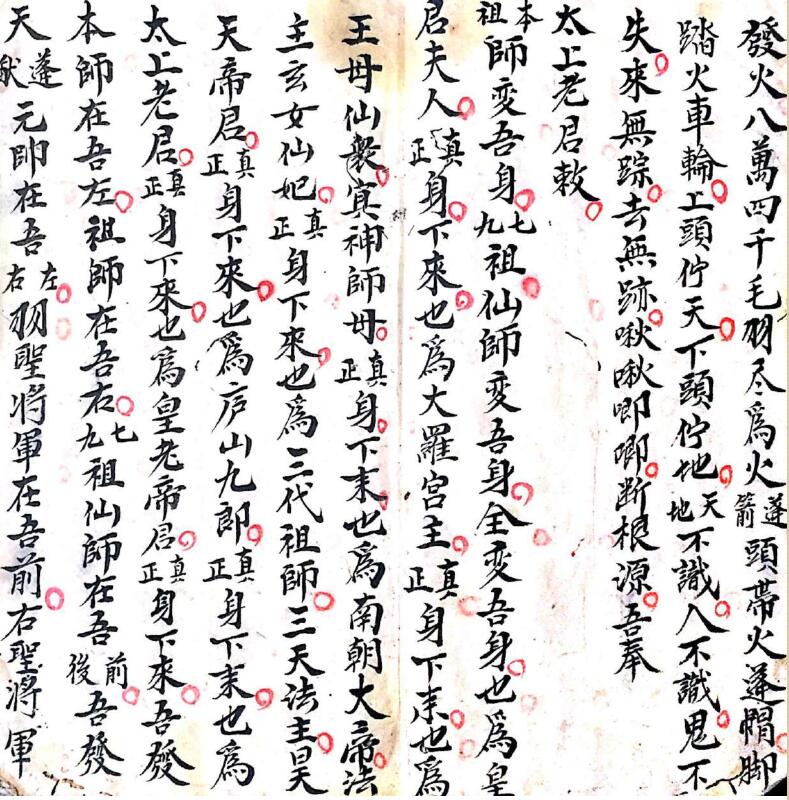 發火八萬四千毛羽尽爲火蓬箭頭帶火蓬帽脚
踏火車輪上頭佇天下頭佇地天地不識人不識鬼不
失來無踪去無跡啾啾唧唧断根源吾奉
太上老君敕
本祖師变吾身七九祖仙師变吾身全变吾身也爲皇
君夫人真正身下來也爲大羅宫主真正身下來也爲
王母仙衆寘神師母真正身下來也爲南朝大帝法
主玄女仙妃真正身下來也爲三代祖師三天法主昊
天帝君真正身下來也爲庐山九郎真正身下來也爲
太上老君真正身下來也爲皇老帝君真正身下來吾發
本師在吾左祖師在吾右七九祖仙師在吾前後吾發
天蓬猷元帅在吾左右羽聖將軍在吾前右聖將軍